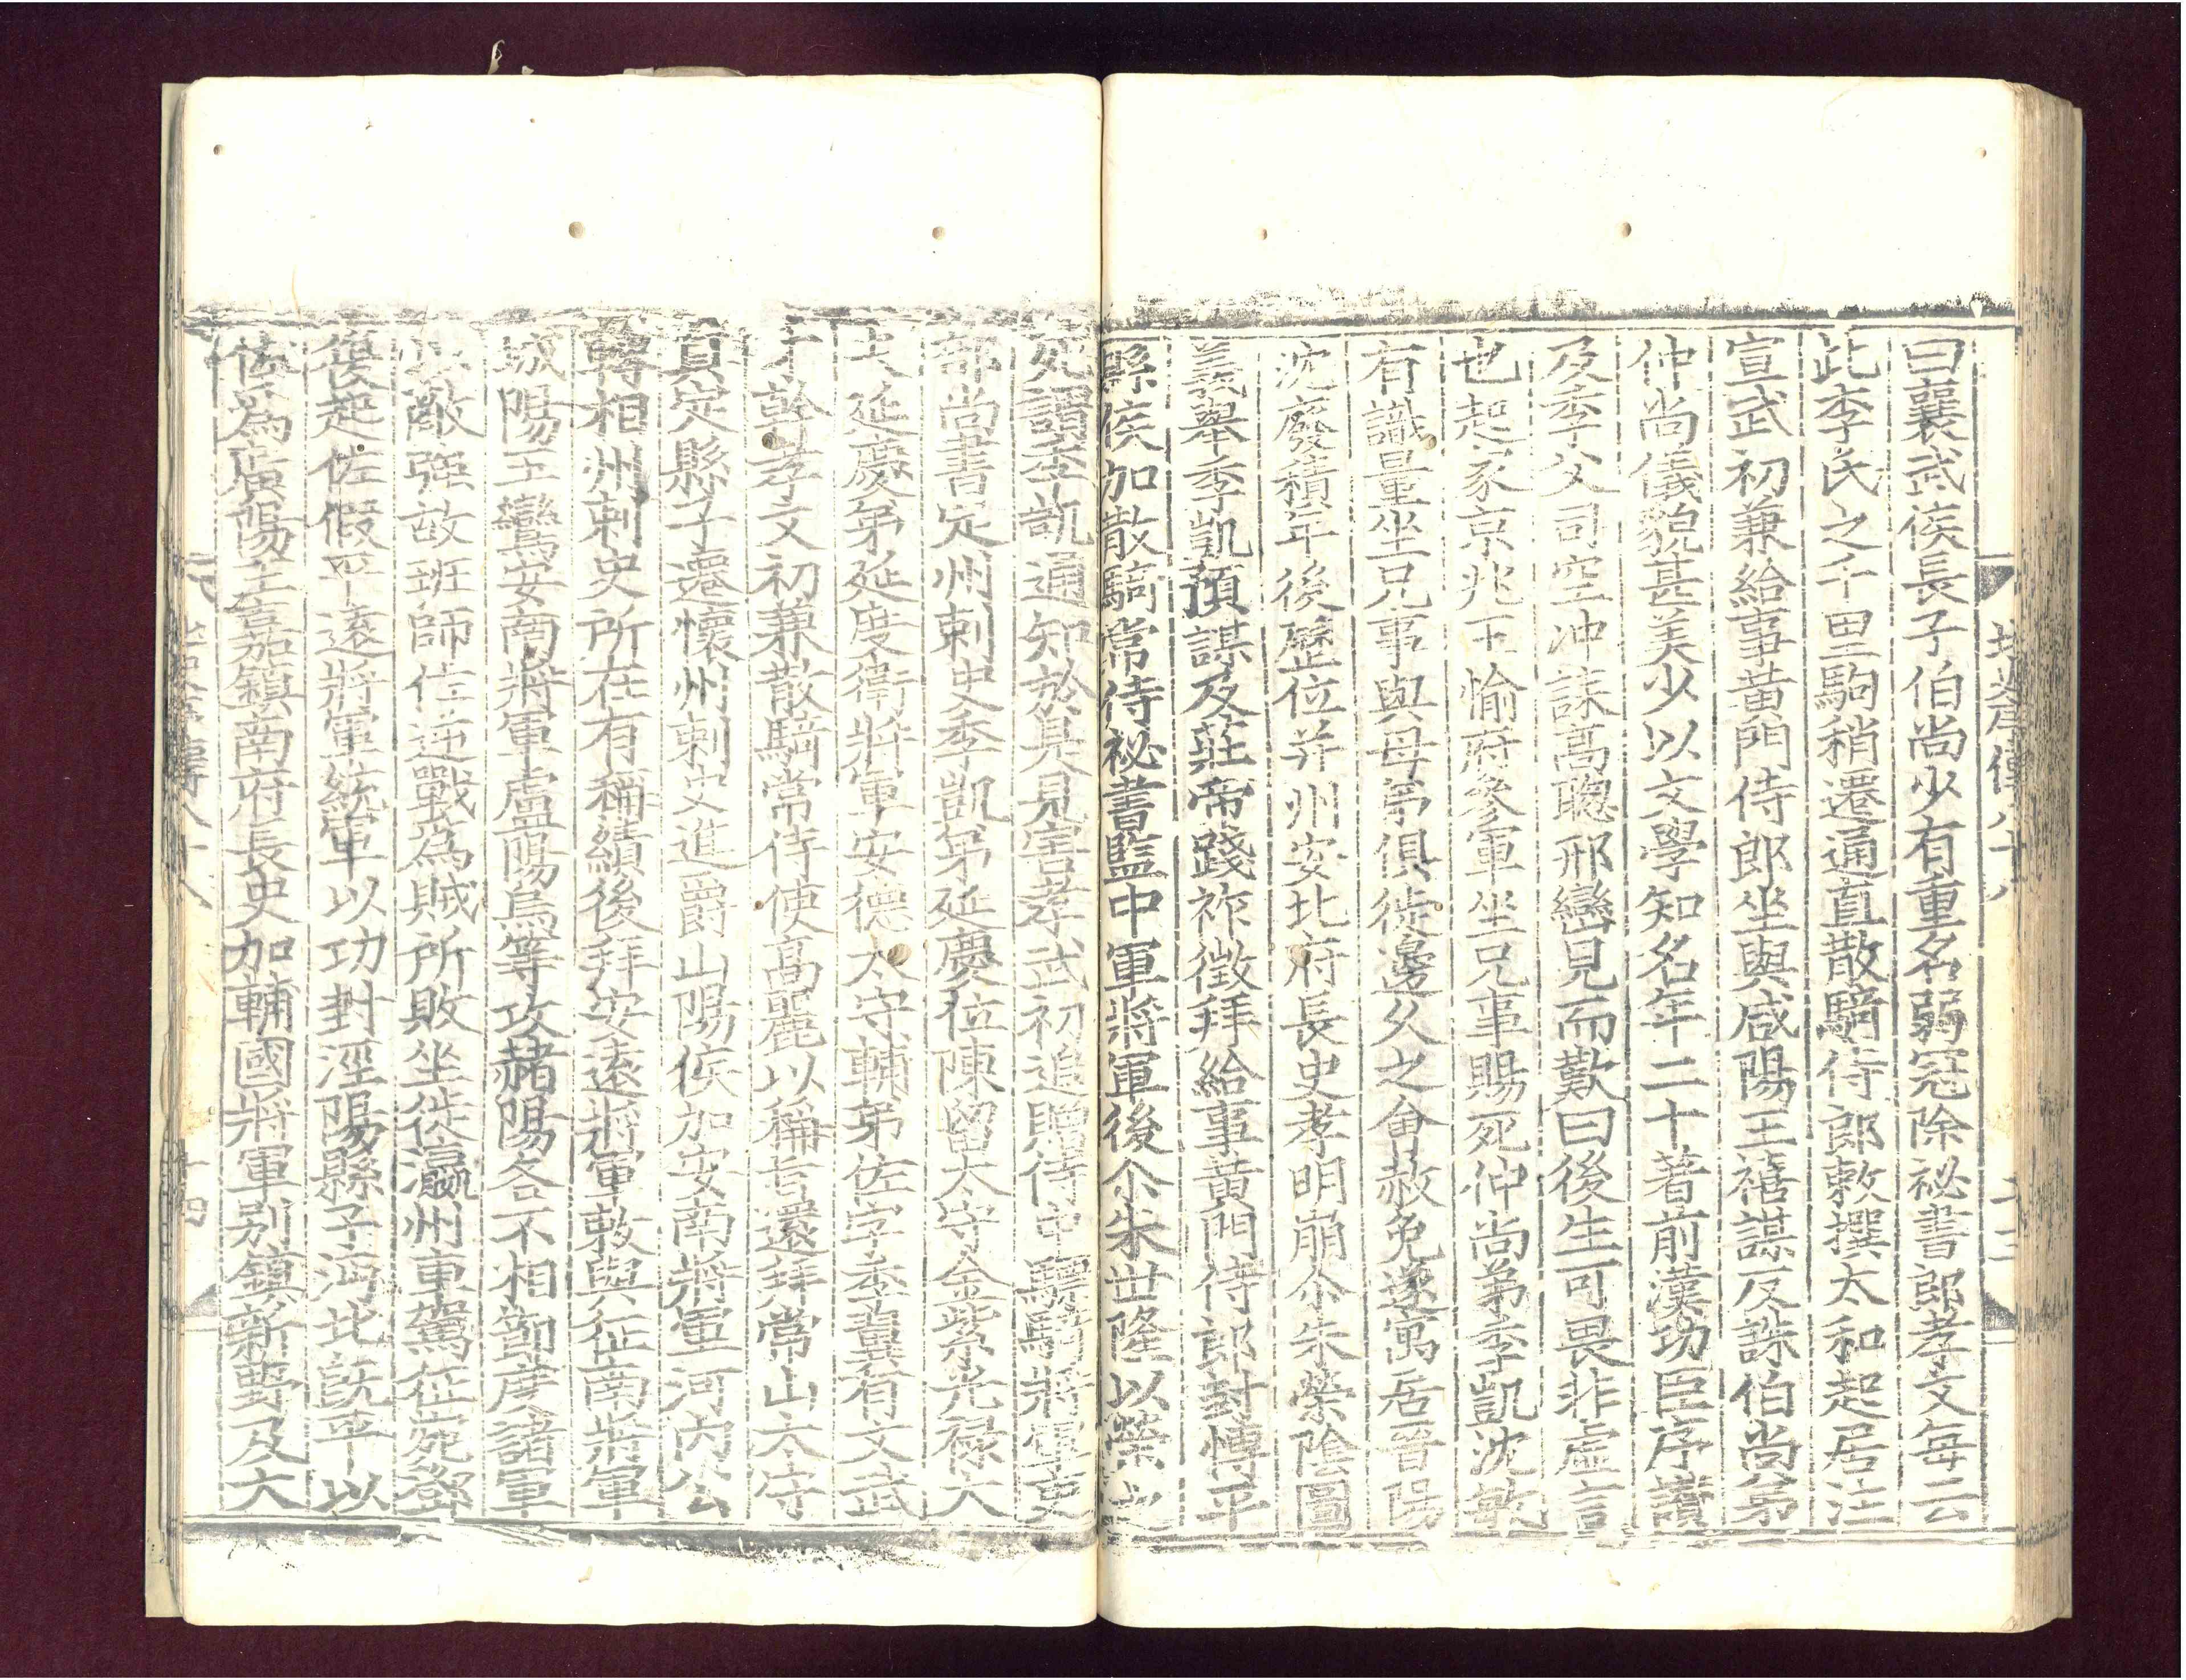 北史序傳八十八
十三
曰襄武侯長子伯尚少有重名弱冠除祕書郎孝文每云
此李氏之千里駒稍遷通直散騎侍郎敕撰太和起居注
宣武初兼給事黃門侍郎坐與咸陽王禧謀反誅伯尚弟
仲尚儀貌甚美少以文學知名年二十著前漢功臣序讚
及季父司空冲誄高聰邢巒見而歎曰後生可畏非虛言
也起家京兆王愉府參軍坐兄事賜死仲尚弟季凱沈敏
有識量坐兄事與母弟俱徙邊久之會赦免遂寓居晉陽
沈廢積年後歷位并州安北府長史孝明崩尒朱榮陰圖
義舉季凱預謀及莊帝踐祚徵拜給事黃門侍郎封愽平
縣侯加散騎常侍祕書監中軍將軍後尒朱世隆以榮之
死謂季凱通知於是見害孝武初追贈侍中驃騎將軍吏
部尚書定州刺史季凱弟延慶位陳留太守金紫光祿大
夫延慶弟延度衛將軍安德太守輔弟佐字季翼有文武
才幹孝文初兼散騎常侍使高麗以稱旨還拜常山太守
真定縣子遷懷州刺史進爵山陽侯加安南將軍河內公
轉相州刺史所在有稱績後拜安遠將軍敕與征南將軍
城陽王鸞安南將軍盧陽烏等攻赭陽各不相節度諸軍
以敵强故班師佐逆戰為賊所敗坐徙瀛州車駕征宛鄧
復起佐假平遠將軍統軍以功封涇陽縣子沔北既平以
佐為廣陽王嘉鎮南府長史加輔國將軍別鎮新野及大
北史序傳八十八
十四